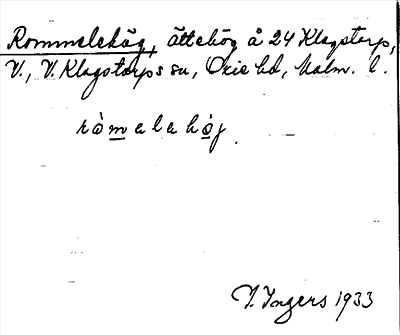 Rommelehög, ättehög å 24 Klagstorp,
V., V. Klagstorps sn, Oxie hd, Malm. l.
ròmelehój.
I. Ingers 1933